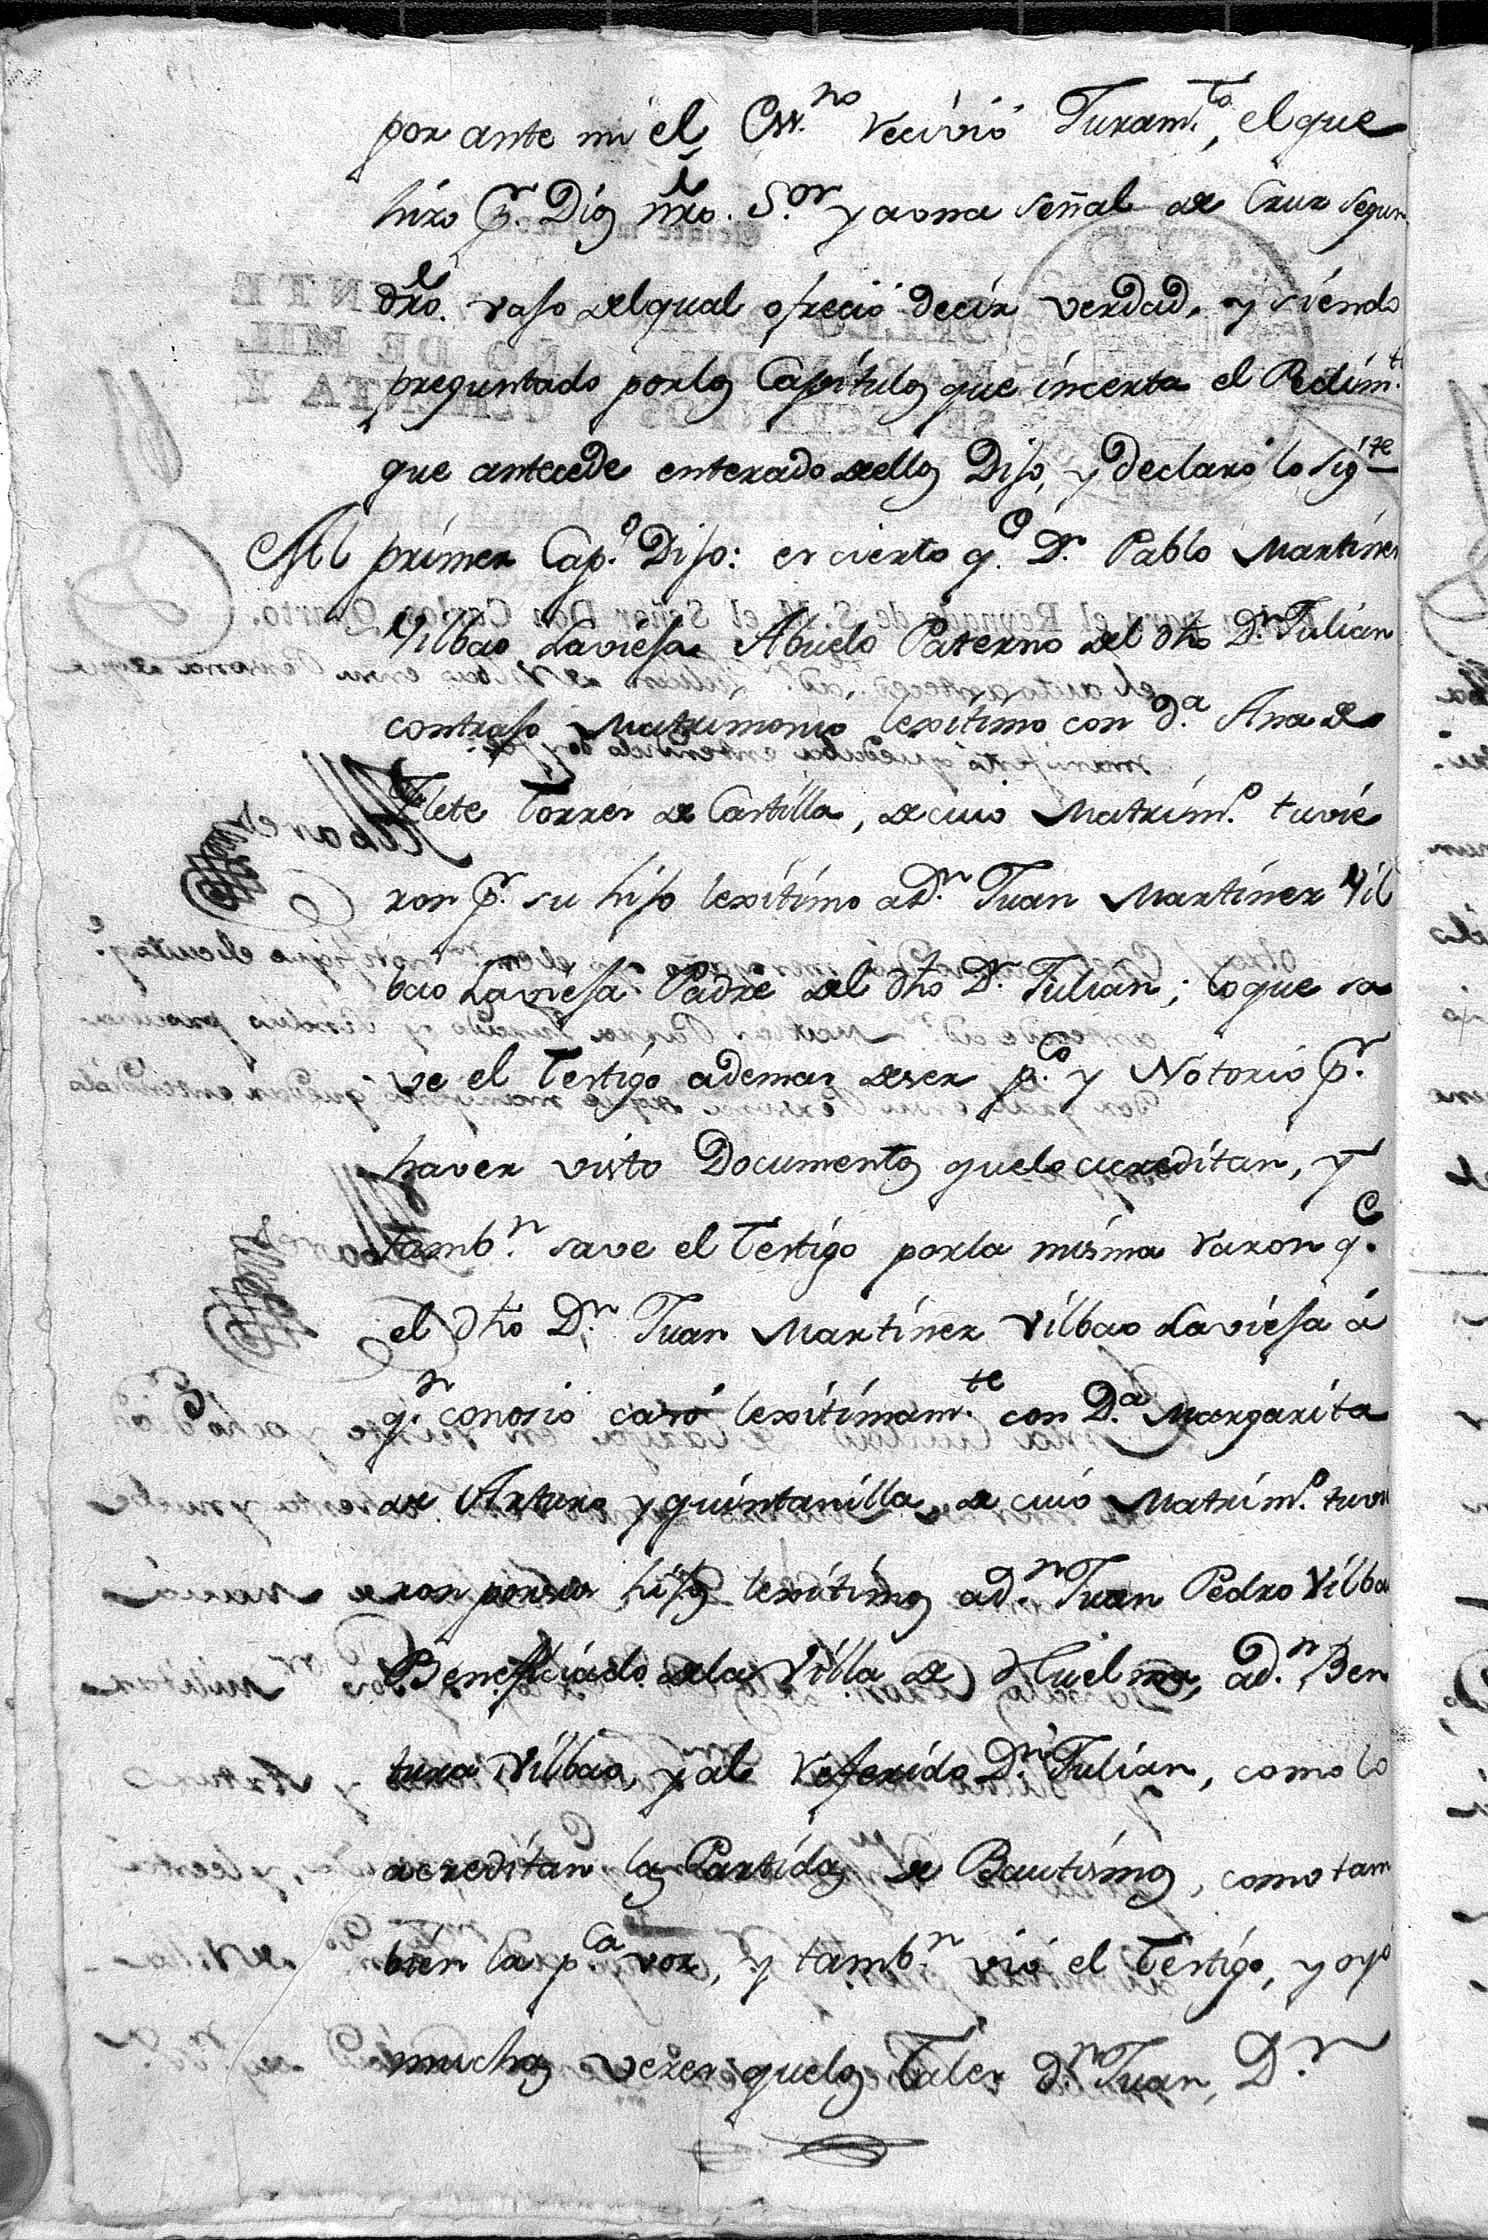 por ante mi el Ess.no recivio Juram.to, el que
hizo p.r Dios nro. S.or y a una señal de Cruz segun
dro. vajo del qual ofrecio decir verdad, y siendo
preguntado por los Capitulos que incerta el Pedim.to
que antecede enterado de ellos Dijo, y declaro lo sig.te
Al primer Cap.o Dijo: es cierto q.e D.n Pablo Martinez
Vilbao Laviesa Abuelo Paterno del dho D.n Julian
contrajo Matrimonio lexitimo con d.a Ana de
Flete Torres de Castilla, de cuio Matrim.o tuvie
ron p.r su hijo lexitimo a D.n Juan Martinez Vil
bao Laviesa Padre del dho D.n Julian; lo que sa
ve el Testigo ademas de ser p.co y Notorio p.r
haver visto Documentos que lo acreditan, y
tamb.n save el Testigo por la misma razon q.e
el dho D.n Juan Martinez Vilbao Laviesa á
q.n conosio casó lexitimam.te con D.a Margarita
de Arturo y quintanilla, de cuio Matrim.o tuvie
ron por sus hijos lexitimos a d.n Juan Pedro Vilbao
Beneficiado de la Villa de Huelma, a d.n Ben
tura Vilbao, y al referido D.n Julian, como lo
acreditan las Partidas de Bautismos, como tam
bien la p.ca voz, y tamb.n vió el Testigo, y oyó
muchas vezes que los tales d.n Juan, D.n